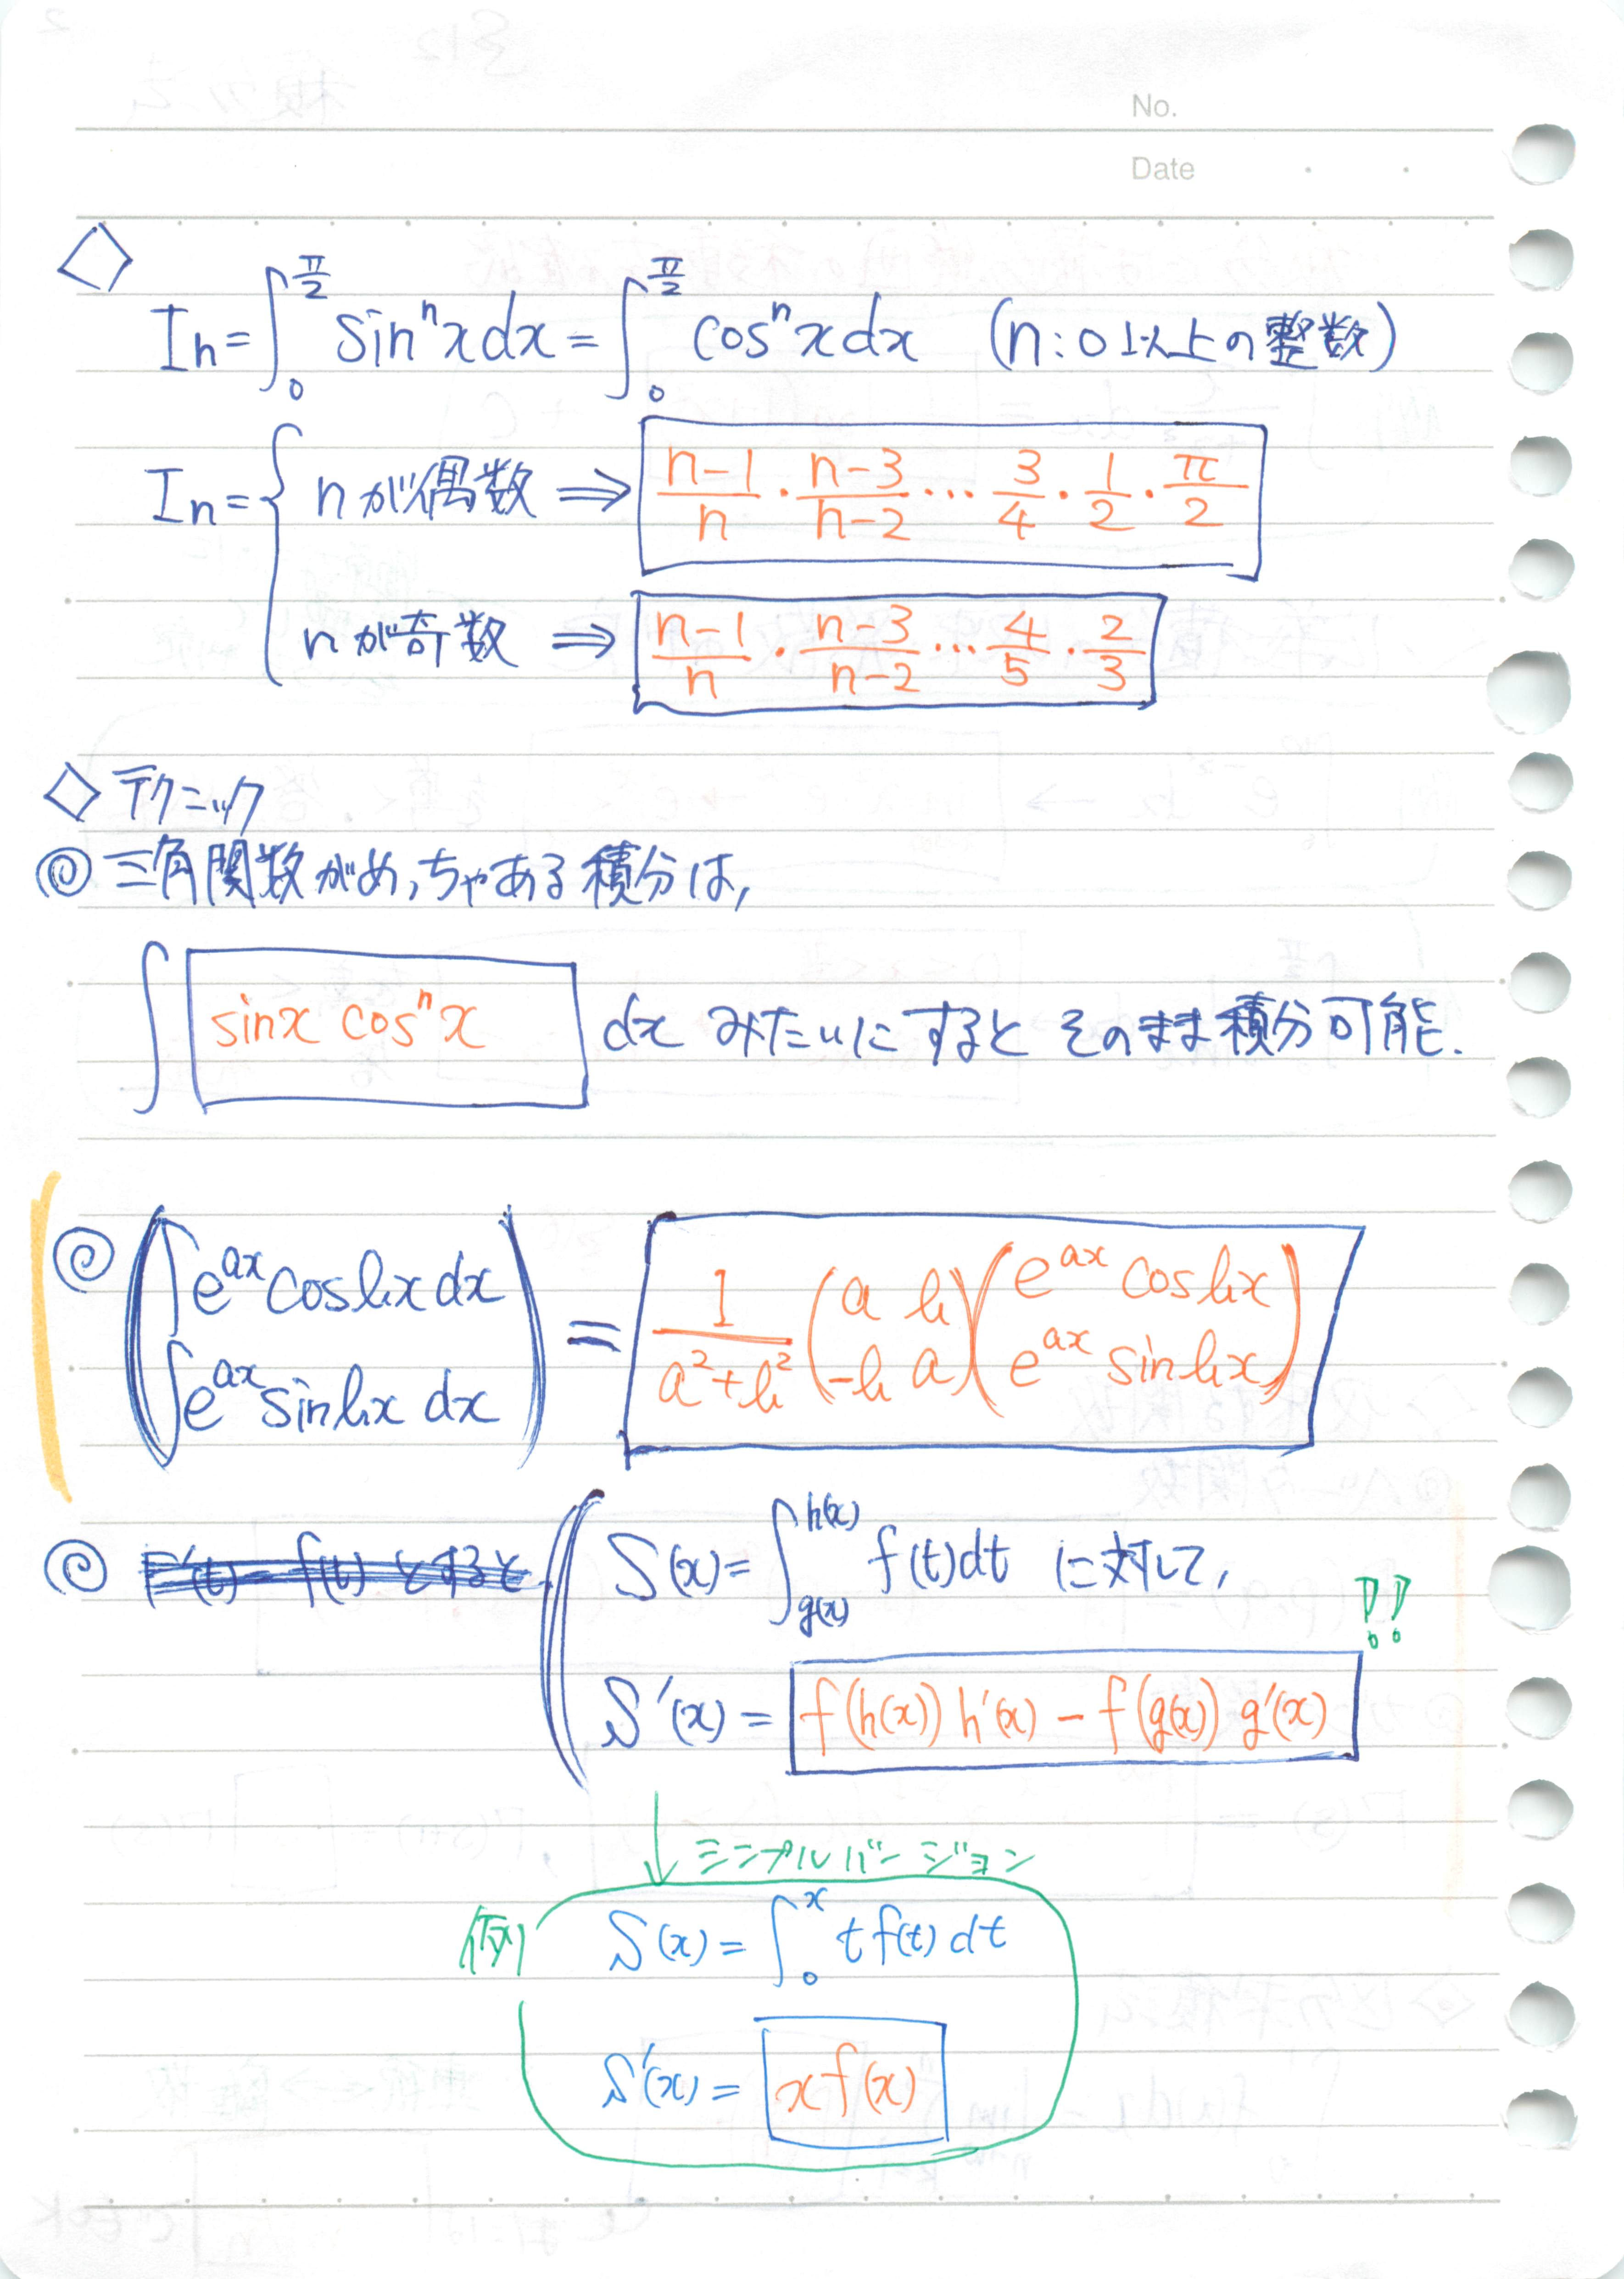 No.
Date
◇
Iₙ = ∫₀^{π/2} sinⁿx dx = ∫₀^{π/2} cosⁿx dx (n:0以上の整数)
Iₙ = { nが偶数 ⇒ (n-1)/n · (n-3)/(n-2) ··· 3/4 · 1/2 · π/2
nが奇数 ⇒ (n-1)/n · (n-3)/(n-2) ··· 4/5 · 2/3
◇ テクニック
◎ 三角関数がめっちゃある積分は,
∫ sinx cosⁿx dx みたいにすると そのまま積分可能.
◎ ( ∫e^{ax}cosbx dx ; ∫e^{ax}sinbx dx ) = 1/(a²+b²) ( a b ; -b a ) ( e^{ax} cosbx ; e^{ax} sinbx )
◎ F'(t) = f(t) とすると ( S(x) = ∫_{g(x)}^{h(x)} f(t)dt に対して,
S'(x) = f(h(x)) h'(x) - f(g(x)) g'(x) !!
↓ シンプルバージョン
例 S(x) = ∫₀^x t f(t) dt
S'(x) = x f(x)